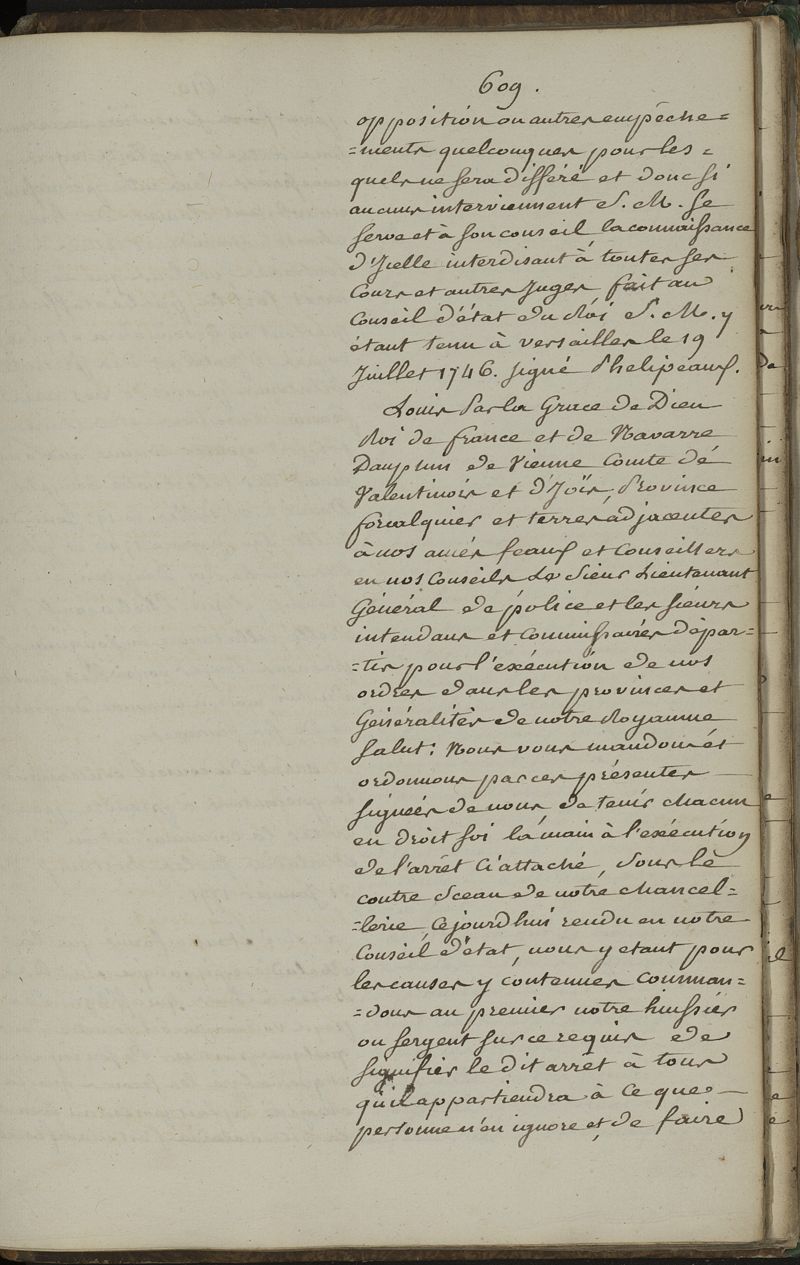 609.
opposition ou autres empêche=
=ments quelconques pour les =
quels ne sera différé et donc si
aucuns interviennent S. M. se
serve et à son conseil, la connaissance
d'Jcelle interdisant à toutes ses
Cours et autres Juges fait au
Conseil d'état du Roi S. M. y
étant tenu à versailles le 19
Juillet 1746. signé Phelipeaux.
Louis Par la Grace de Dieu
Roi de france et de Navarre
Dauphin de Vienne Comte dé
Valentinois et d'Joïs, Province
forcalquier et terres adjacentes
à nos amés feaux et Conseillers
en nos Conseils Le Sieur Lieutenant
Général de police et les sieurs
intendans et Commissaires dépar=
=tis pour l'exécution de nos
ordres dans les provinces et
Généralités de notre Royaume
Salut: Nous vous mandons et
ordonnons par ces présentes
signées de nous de tenir chacun
en droit soi la main à l'exécution
de l'arrêt ci attaché, sous lé
contre Sceau de notre chancel=
=lerie, ce jourd'hui rendu en notre
Conseil d'état, nous y etant pour
les causes y contenues Comman=
=dons au premier notre huissier
ou sergent sur ce requis de
signifier le dit arrêt à tous
qu'il appartiendra à ce que
personne n'en ignore et de faire